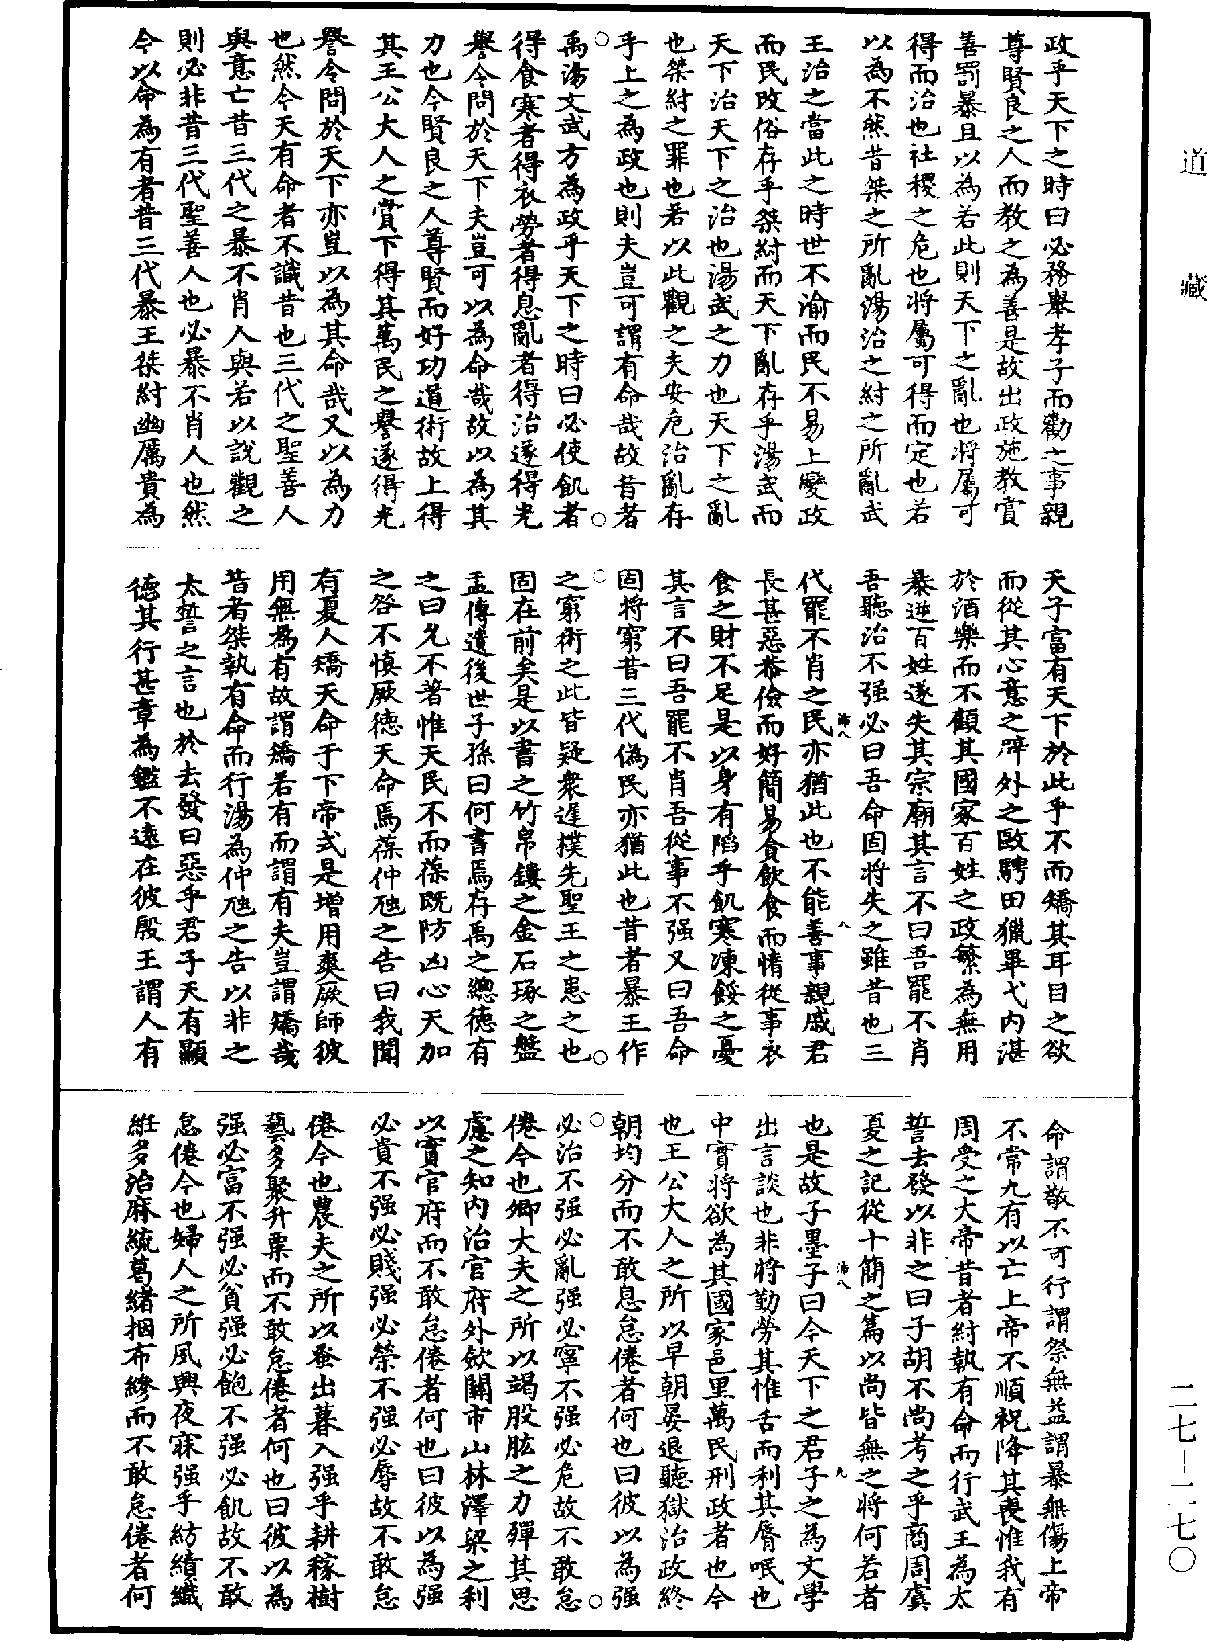 道藏
政乎天下之時曰必務舉孝子而勸之事親
尊賢良之人而教之為善是故出政施教賞
善罰暴且以為若此則天下之亂也將屬可
得而治也社稷之危也將屬可得而定也若
以為不然昔桀之所亂湯治之紂之所亂武
王治之當此之時世不渝而民不易上變政
而民改俗存乎桀紂而天下亂存乎湯武而
天下治天下之治也湯武之力也天下之亂
也桀紂之罪也若以此觀之夫安危治亂存
乎上之為政也則夫豈可謂有命哉故昔者
禹湯文武方為政乎天下之時曰必使飢者
得食寒者得衣勞者得息亂者得治遂得光
譽令問於天下夫豈可以為命哉故以為其
力也今賢良之人尊賢而好功道術故上得
其王公大人之賞下得其萬民之譽遂得光
譽令問於天下亦豈以為其命哉又以為力
也然今天有命者不識昔也三代之聖善人
與意亡昔三代之暴不肖人與若以說觀之
則必非昔三代聖善人也必暴不肖人也然
今以命為有者昔三代暴王桀紂幽厲貴為
天子富有天下於此乎不而矯其耳目之欲
而從其心意之辟外之敺騁田獵畢弋內湛
於酒樂而不顧其國家百姓之政繁為無用
暴逆百姓遂失其宗廟其言不曰吾罷不肖
吾聽治不强必曰吾命固將失之雖昔也三
代罷不肖之民亦猶此也不能善事親戚君
長甚惡恭儉而好簡易貪飲食而惰從事衣
食之財不足是以身有陷乎飢寒凍餒之憂
其言不曰吾罷不肖吾從事不强又曰吾命
固將窮昔三代偽民亦猶此也昔者暴王作
之窮術之此皆疑衆遲樸先聖王之患之也
固在前矣是以書之竹帛鏤之金石琢之盤
盂傳遺後世子孫曰何書焉存禹之總德有
之曰允不著惟天民不而葆既防凶心天加
之咎不慎厥德天命焉葆仲虺之告曰我聞
有夏人矯天命于下帝式是增用爽厥師彼
用無為有故謂矯若有而謂有夫豈謂矯哉
昔者桀執有命而行湯為仲虺之告以非之
太誓之言也於去發曰惡乎君子天有顯
德其行甚章為鑑不遠在彼殷王謂人有
命謂敬不可行謂祭無益謂暴無傷上帝
不常九有以亡上帝不順祝降其喪惟我有
周受之大帝昔者紂執有命而行武王為太
誓去發以非之曰子胡不尚考之乎商周虞
夏之記從十簡之篇以尚皆無之將何若者
也是故子墨子曰今天下之君子之為文學
出言談也非將勤勞其惟舌而利其脣呡也
中實將欲為其國家邑里萬民刑政者也今
也王公大人之所以早朝晏退聽獄治政終
朝均分而不敢息怠倦者何也曰彼以為强
必治不强必亂强必寧不强必危故不敢怠
倦今也卿大夫之所以竭股肱之力殫其思
慮之知內治官府外斂關市山林澤梁之利
以實官府而不敢怠倦者何也曰彼以為强
必貴不强必賤强必榮不强必辱故不敢怠
倦今也農夫之所以蚤出暮入强乎耕稼樹
藝多聚升粟而不敢怠倦者何也曰彼以為
强必富不强必貧强必飽不强必飢故不敢
怠倦今也婦人之所夙興夜寐强乎紡績織
絍多治麻統葛緒捆布縿而不敢怠倦者何
二七－二七〇